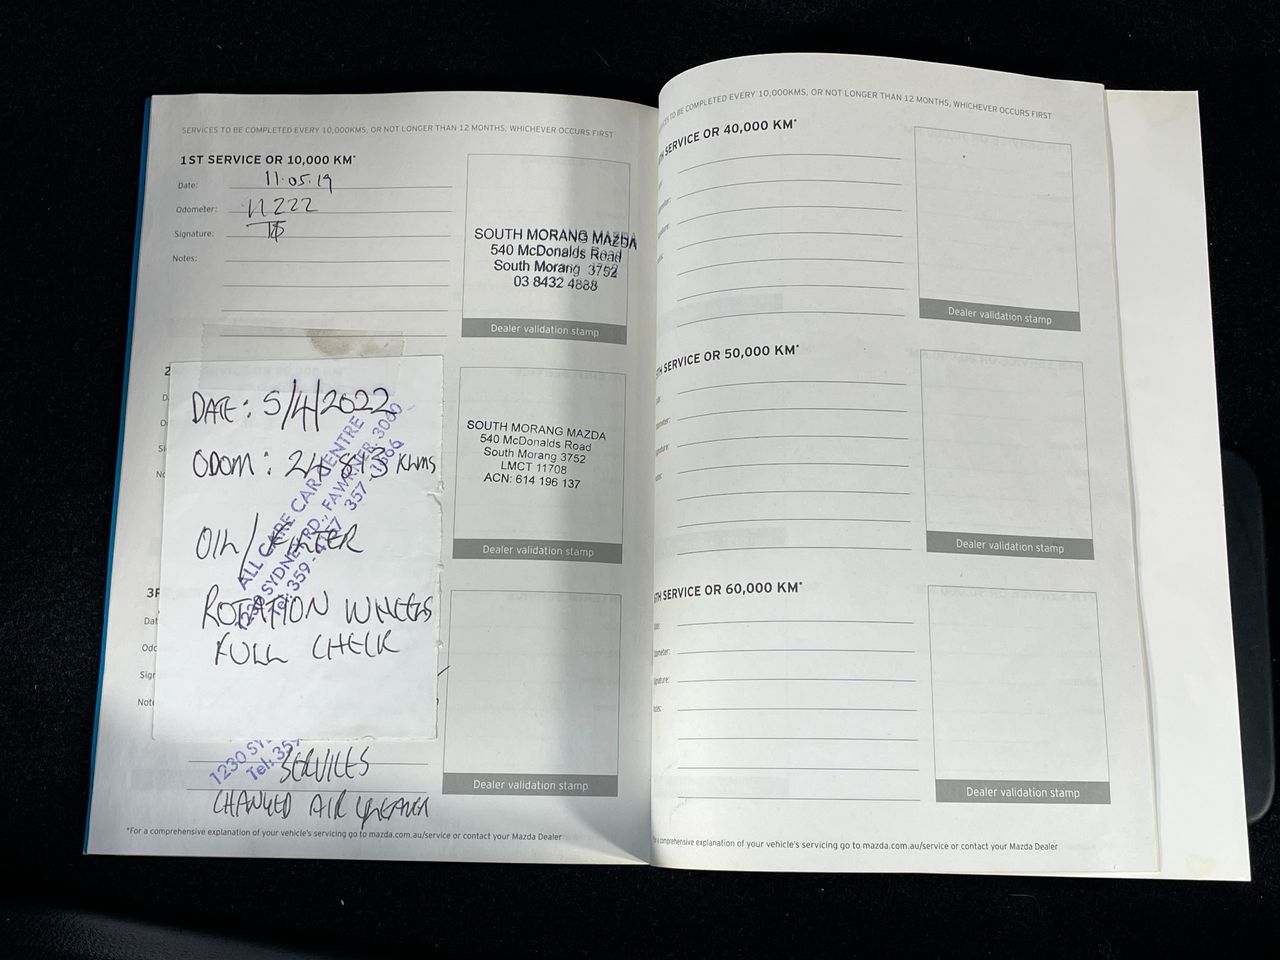 SERVICES TO BE COMPLETED EVERY 10,000KMS, OR NOT LONGER THAN 12 MONTHS, WHICHEVER OCCURS FIRST
1ST SERVICE OR 10,000 KM*
Date: 11.05.19
Odometer: 11222
Signature:
Notes:
SOUTH MORANG MAZDA
540 McDonalds Road
South Morang 3752
03 8432 4888
Dealer validation stamp
DATE: 5/4/2022
ODOM: 24 813 Khms
OIL/FILTER
ROTATION WHEELS
FULL CHECK
ALL CARE CAR CENTRE
1230 SYDNEY RD., FAWKNER. 3060
Tel: 359 - 4457 357 - 1566
SOUTH MORANG MAZDA
540 McDonalds Road
South Morang 3752
LMCT 11708
ACN: 614 196 137
Dealer validation stamp
1230 SY
Tel: 359
SERVICES
CHANGED AIR CLEANER
Dealer validation stamp
*For a comprehensive explanation of your vehicle's servicing go to mazda.com.au/service or contact your Mazda Dealer
TO BE COMPLETED EVERY 10,000KMS, OR NOT LONGER THAN 12 MONTHS, WHICHEVER OCCURS FIRST
SERVICE OR 40,000 KM*
Dealer validation stamp
SERVICE OR 50,000 KM*
Dealer validation stamp
SERVICE OR 60,000 KM*
Dealer validation stamp
comprehensive explanation of your vehicle's servicing go to mazda.com.au/service or contact your Mazda Dealer